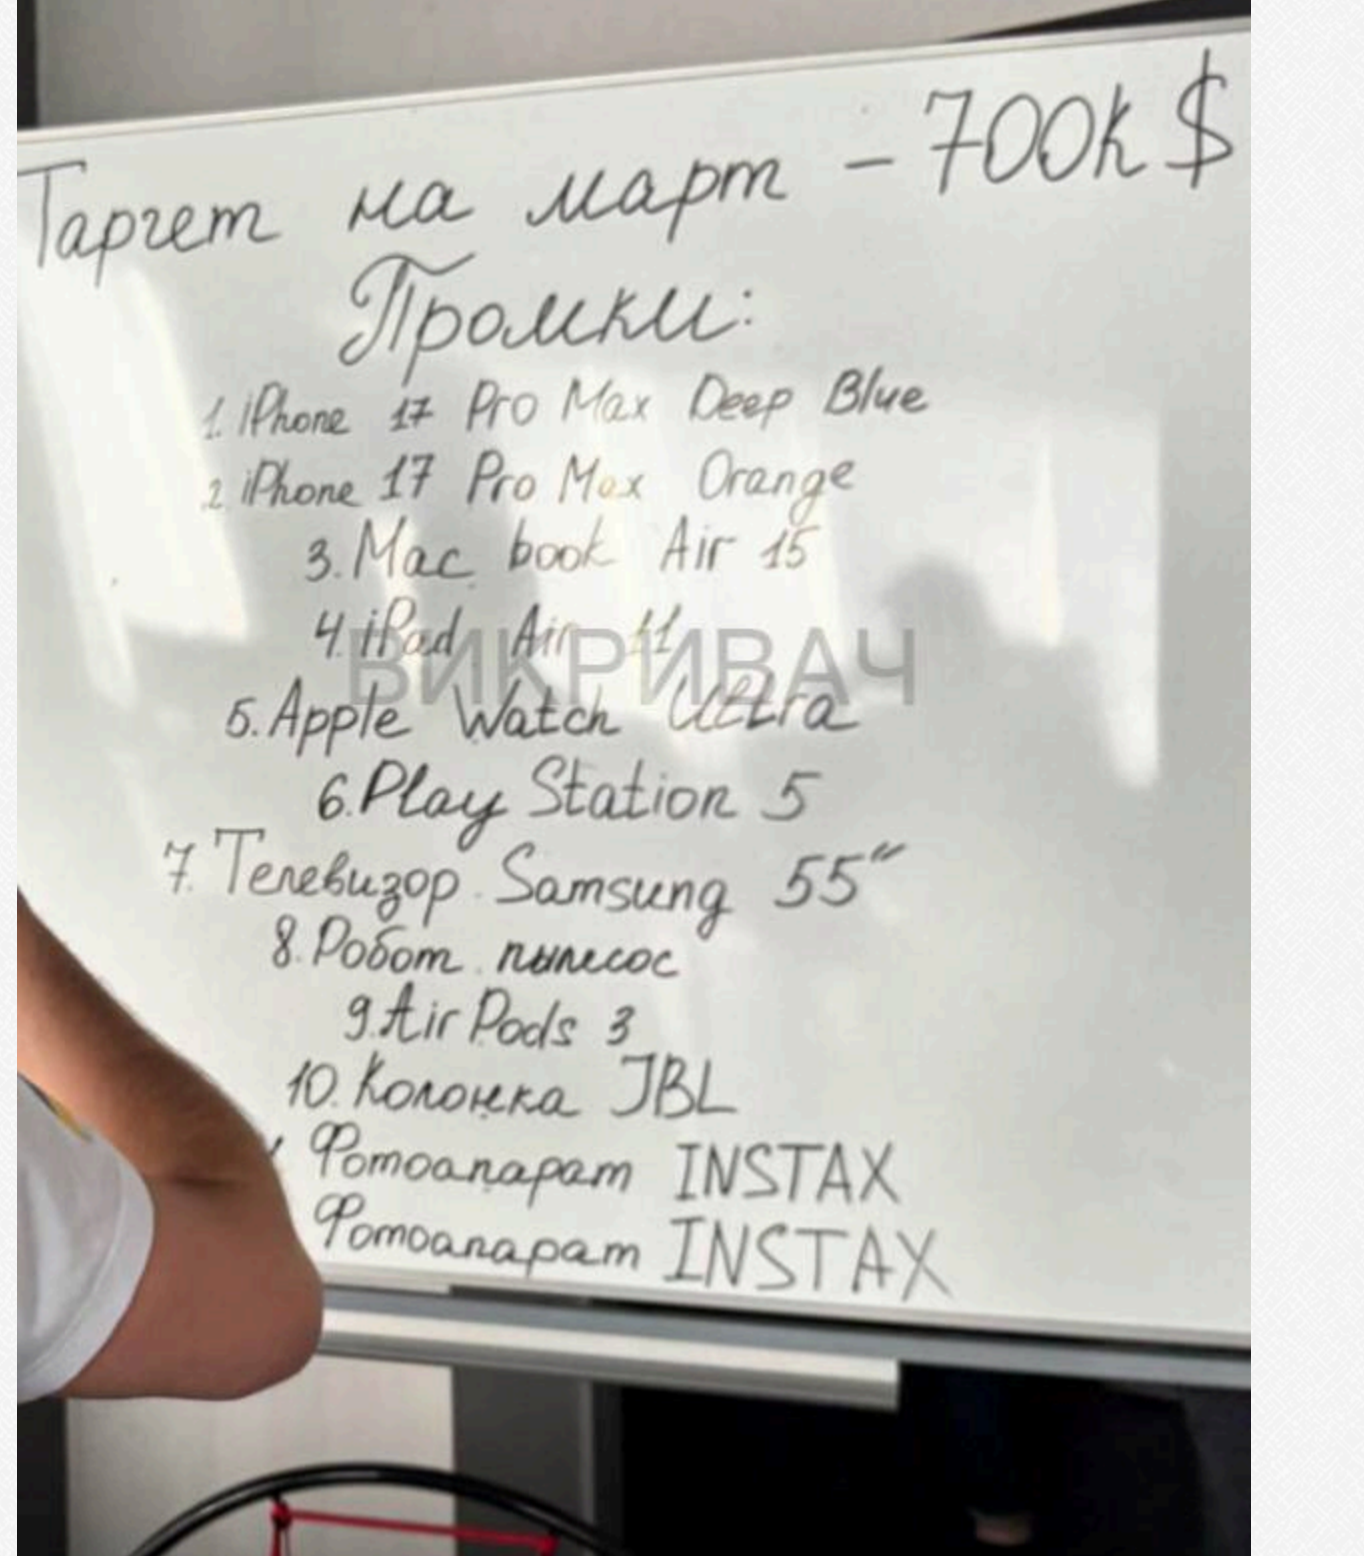 Таргет на март - 700k $
Промки:
1. iPhone 17 Pro Max Deep Blue
2. iPhone 17 Pro Max Orange
3. Mac book Air 15
4. iPad Air 11
ВИКРИВАЧ
5. Apple Watch Ultra
6. Play Station 5
7. Телевизор Samsung 55"
8. Робот пылесос
9. Air Pods 3
10. Колонка JBL
Фотоапарат INSTAX
Фотоапарат INSTAX